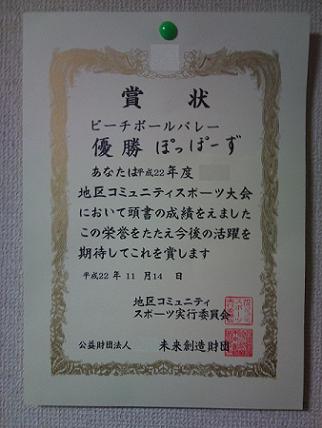 賞状
ビーチボールバレー
優勝 ぽっぽーず
あなたは平成22年度
地区コミュニティスポーツ大会
において頭書の成績をえました
この栄誉をたたえ今後の活躍を
期待してこれを賞します
平成22年11月14日
地区コミュニティ
スポーツ実行委員会
公益財団法人 未来創造財団